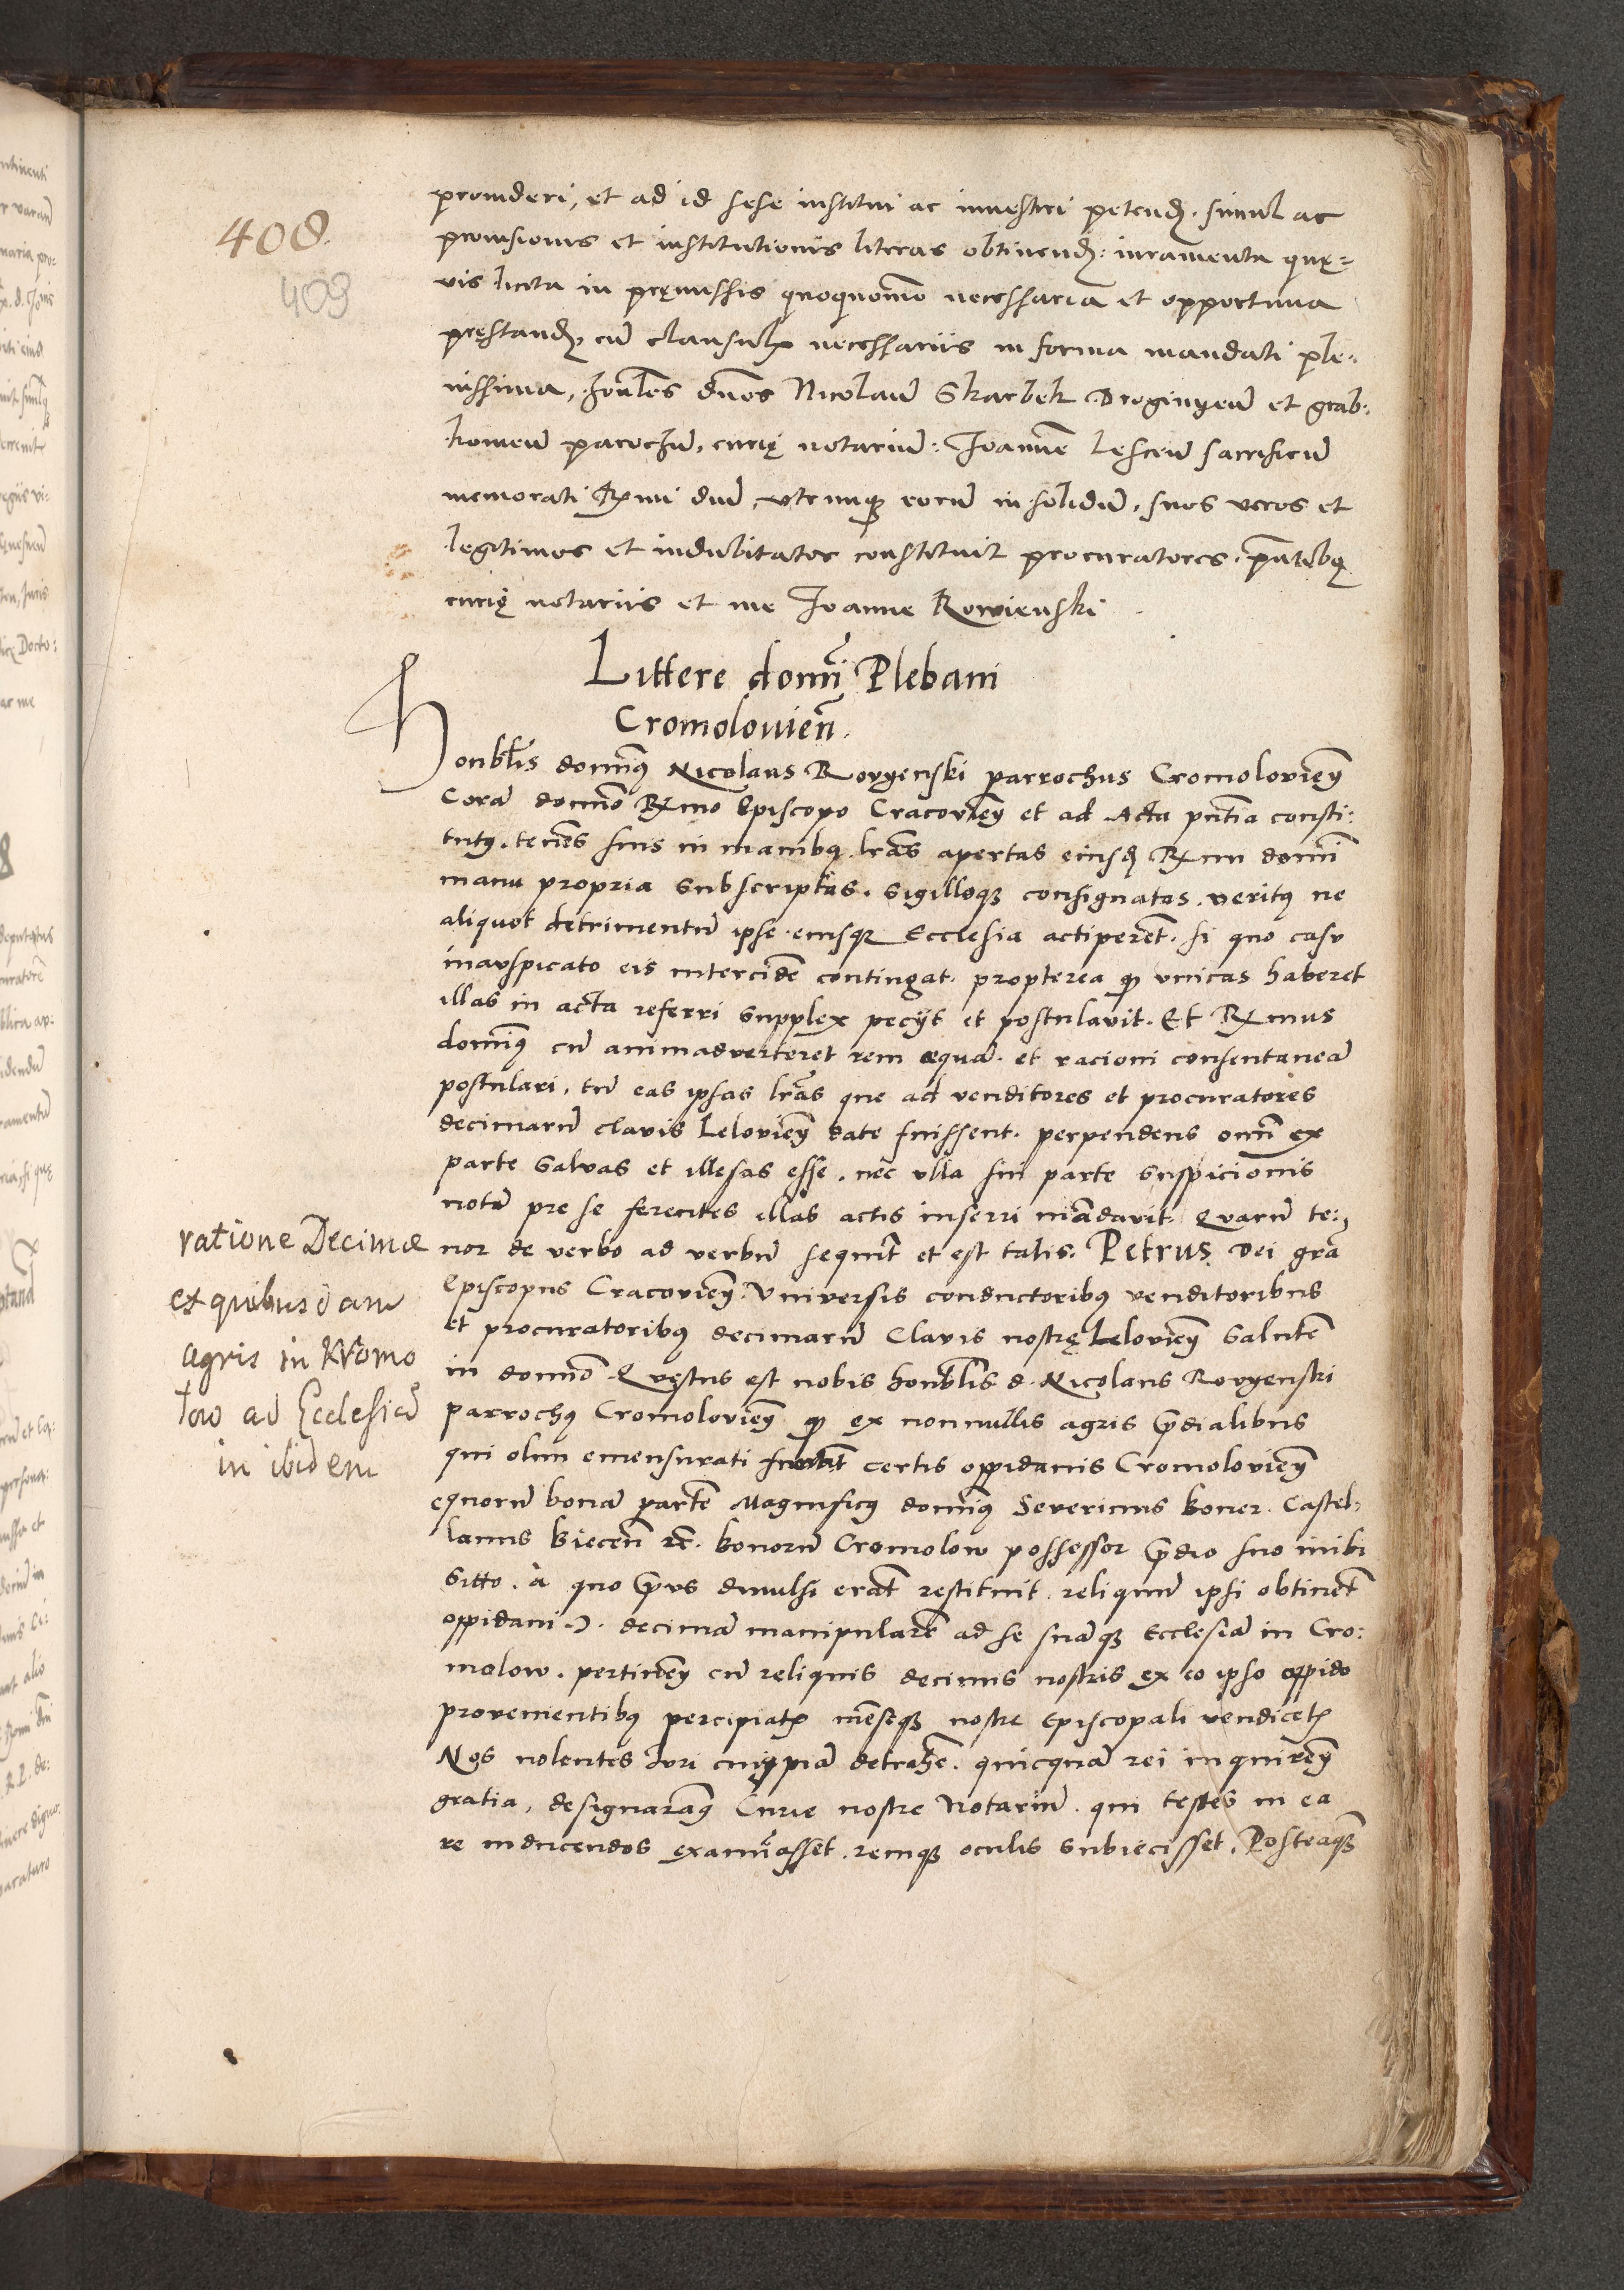 408.
409
prouideri, et ad id sese institui ac inuestiri petendꝫ. simul ac
prouisionis et institutionis literas obtinendꝫ: iuramenta quę=
vis licita in pręmissis quoquomō necessaria et opportuna
pręstandꝫ, cū clausulꝭ necessariis in forma mandati ple-
nissima, honłes dnos Nicolaū Skarbek Droginyeū et Grab-
koweū parochū, curię notariū: Joannē Lesceū sacrificū
memorati Rꝫmi dnī, vtrunqꝫ eorū in solidū, suos veros et
legitimos et indubitatos constituit procuratores. pn̄tibꝰ
curię notariis et me Joanne Rowienski
Littere domī Plebani
Cromolouien̄.
Honbłis domīꝰ Nicolaus Rovyenski parrochus Cromoloviēn
Corā domīo Rꝫmo Episcopo Cracoviēn et ad Acta pn̄tia consti:
tutꝰ. tenēs suis in manibꝰ lrās apertas eiusdꝫ Rꝫmi domī
manu propria subscriptas. sigilloqꝫ consignatas. veritꝰ ne
aliquot detrimentū ipse eiusque Ecclesia actiperēt. si quo casu
inauspicato eis intercidē contingat. propterea qꝫ vnicas haberet
illas in acta referri supplex peciit et postulavit. Et Rꝫmus
domīꝰ cū animadverteret rem æquā. et racioni consentaneā
postulari. tū eas ipsas lrās que ad venditores et procuratores
decimarū clavis Leloviēn date fuissent. perpendens omī ex
parte salvas et illesas esse. nec vlla sui parte suspicionis
notā pre se ferentes illas actis inserri mādavit. Quarū te:
nor de verbo ad verbū sequit̄ et est talis. Petrus Dei grā
Episcopus Cracoviēn. Vniversis conductoribꝰ venditoribus
et procuratoribꝰ decimarū Clavis nostrę Leloviēn Salutē
in domīo. Quęstus est nobis honbłis d. Nicolaus Rovyenski
parrochꝰ Cromoloviēn qꝫ ex nonnullis agris p̄dialibus
qui olim emensurati certis oppidanis Cromoloviēn
equorū bonā partē Magnificꝰ domīꝰ Severinus Boner. Castel-
lanus Biecen̄ ꝛc. bonorū Cromolow possessor p̄dio suo inibi
sitto. à quo p̄us diuulsi erāt restituit. reliquū ipsi obtinēt
oppidani. decimā manipularē ad se suāqꝫ Ecclesiā in Cro:
molow. pertinēn cū reliquis decimis nostris ex eo ipso oppido
provenientibꝰ percipiatꝭ mēseqꝫ nostre Episcopali vendicetꝭ
Nos nolentes Iuri cuippiā detrahē. quicquā rei inquirēn
gratia, designaramꝰ Curie nostre Notariū. qui testes in ea
re inducendos examīasset. remqꝫ oculis subiecisset. Posteaqꝫ
ratione Decimæ
ex quibusdam
agris in Kromo
low ad Ecclesiā
in ibidem